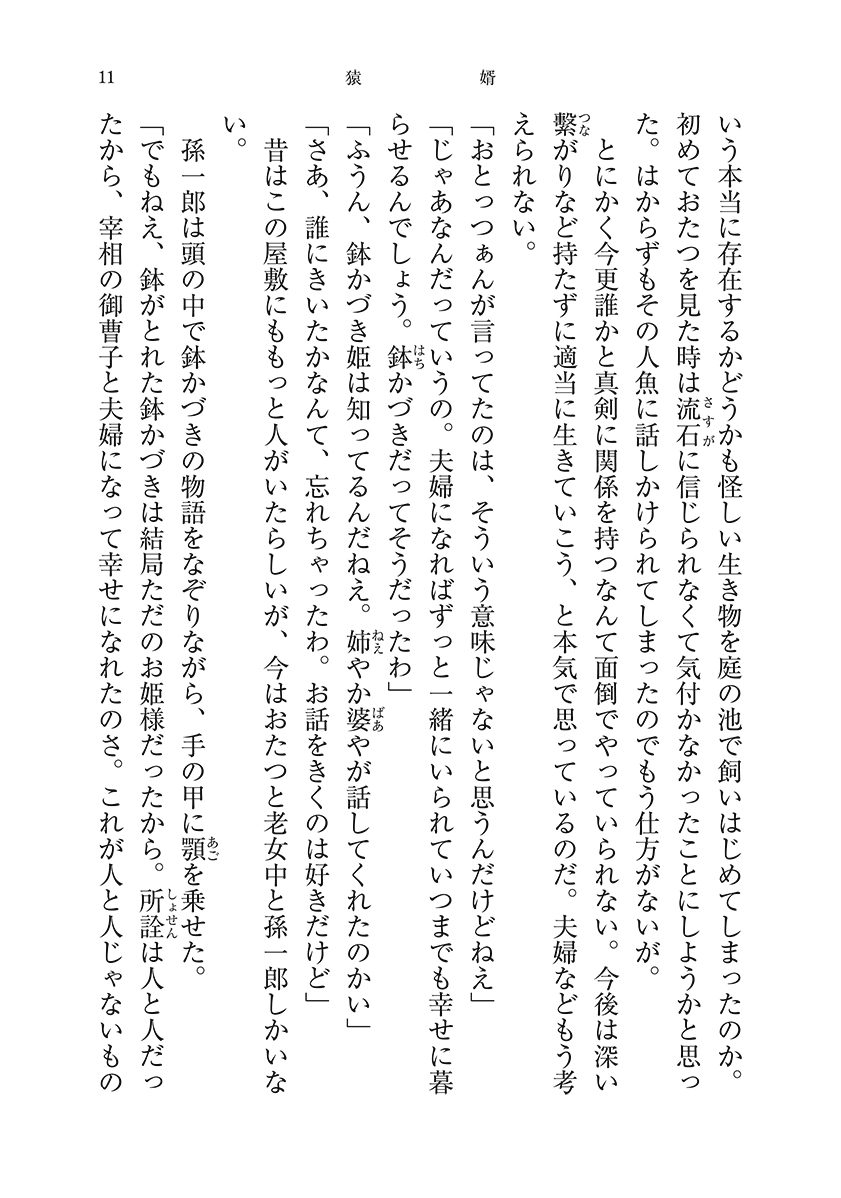 11
猿婿
いう本当に存在するかどうかも怪しい生き物を庭の池で飼いはじめてしまったのか。
初めておたつを見た時は流石に信じられなくて気付かなかったことにしようかと思っ
た。はからずもその人魚に話しかけられてしまったのでもう仕方がないが。
とにかく今更誰かと真剣に関係を持つなんて面倒でやっていられない。今後は深い
繫がりなど持たずに適当に生きていこう、と本気で思っているのだ。夫婦などもう考
えられない。
「おとっつぁんが言ってたのは、そういう意味じゃないと思うんだけどねえ」
「じゃあなんだっていうの。夫婦になればずっと一緒にいられていつまでも幸せに暮
らせるんでしょう。鉢かづきだってそうだったわ」
「ふうん、鉢かづき姫は知ってるんだねえ。姉やか婆やが話してくれたのかい」
「さあ、誰にきいたかなんて、忘れちゃったわ。お話をきくのは好きだけど」
昔はこの屋敷にももっと人がいたらしいが、今はおたつと老女中と孫一郎しかいな
い。
孫一郎は頭の中で鉢かづきの物語をなぞりながら、手の甲に顎を乗せた。
「でもねえ、鉢がとれた鉢かづきは結局ただのお姫様だったから。所詮は人と人だっ
たから、宰相の御曹子と夫婦になって幸せになれたのさ。これが人と人じゃないもの
さすが
つな
はち
ねえ
ばあ
あご
しょせん